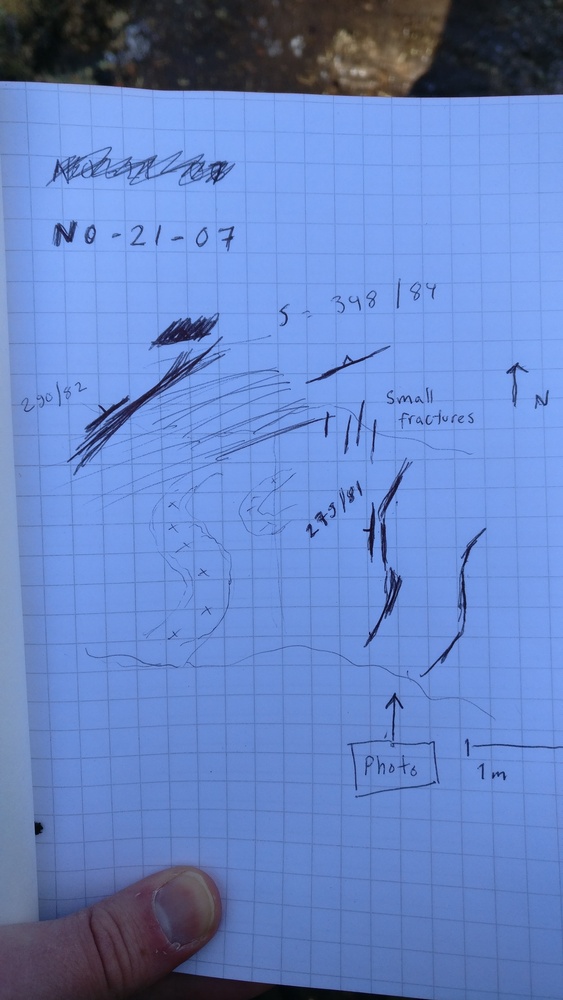 NO-21-07
S = 348/84
290/82
Small
fractures
N
279/81
Photo
1m